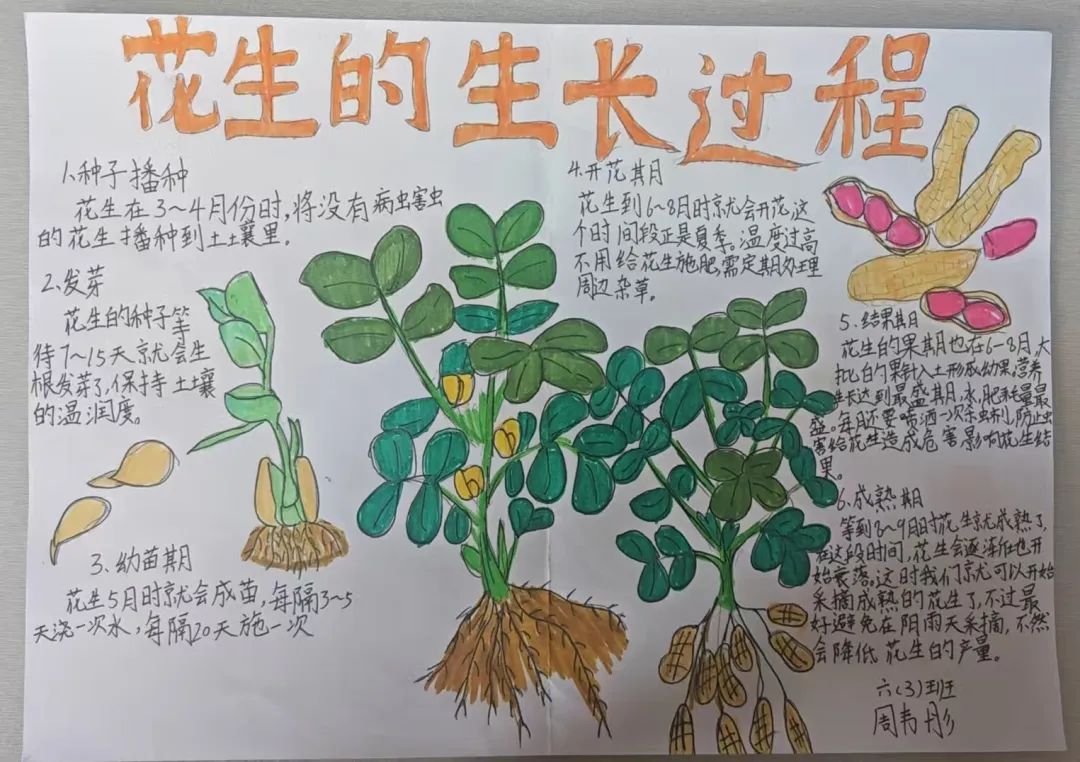 花生的生长过程
1.种子播种
花生在3~4月份时,将没有病虫害虫
的花生播种到土壤里。
2.发芽
花生的种子等
待7~15天就会生
根发芽了,保持土壤
的温润度。
3.幼苗期
花生5月时就会成苗,每隔3~5
天浇一次水,每隔20天施一次
4.开花期
花生到6~8月时就会开花,这
个时间段正是夏季。温度过高
不用给花生施肥,需定期处理
周边杂草。
5.结果期
花生的果期也在6-8月,大
批的果针入土形成幼果。营养
生长达到最盛期,水,肥耗量最
盛。每月还要喷洒一次杀虫剂,防止虫
害给花生造成危害,影响花生结
果。
6.成熟期
等到8~9月时花生就成熟了,
在这段时间,花生会逐渐也开
始衰落。这时我们就可以开始
采摘成熟的花生了,不过最
好避免在阴雨天采摘,不然
会降低花生的产量。
六(3)班
周韦彤